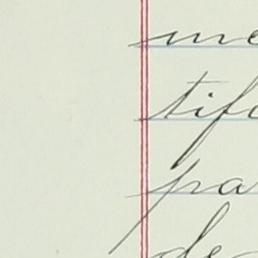 me
tifu
pa
de